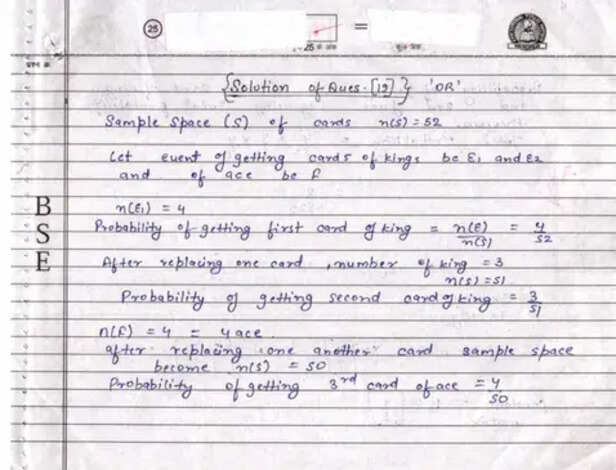 25
=
{Solution of Ques. [19]} 'OR'
Sample Space (S) of cards n(S) = 52
Let event of getting cards of kings be E1 and E2
and of ace be F
n(E1) = 4
Probability of getting first card of king = n(E)/n(S) = 4/52
After replacing one card, number of king = 3
n(S) = 51
Probability of getting second card of king = 3/51
n(F) = 4 = 4 ace.
after replacing one another card sample space
become n(S) = 50
Probability of getting 3rd card of ace = 4/50.
B
S
E